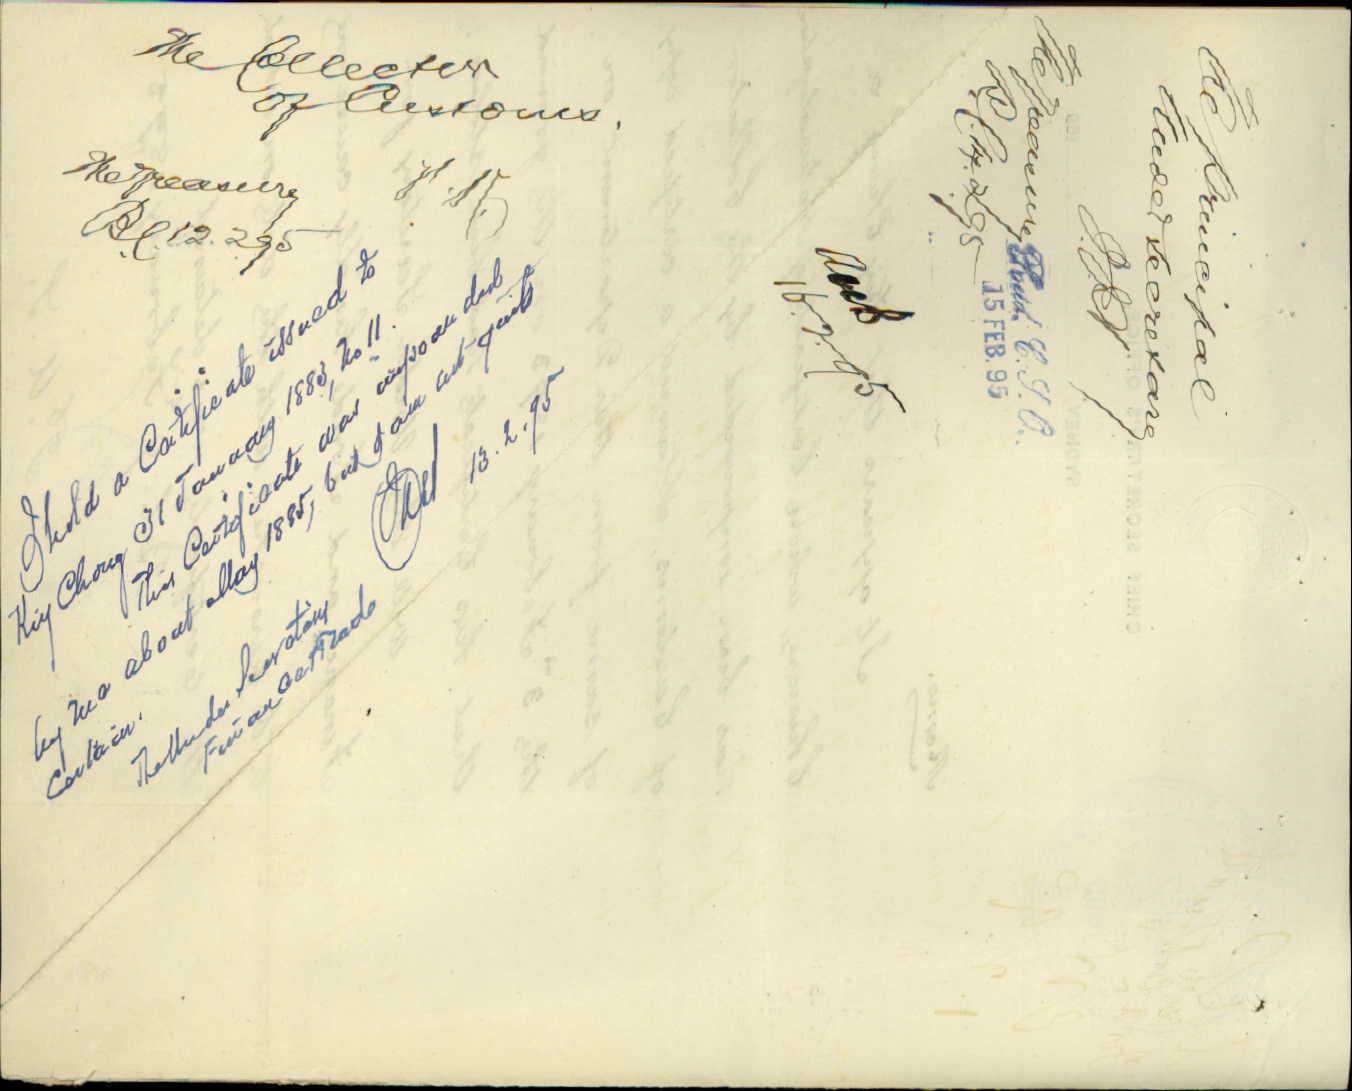 The Collector
of Customs.
The Treasury
B.C. 12.2.95
I hold a Certificate issued to
Kiy Chong 31 January 1883, No 11.
This Certificate was impounded
by me about May 1885, but I am not quite
certain.
13.2.95
The Under Secretary
Finance & Trade
The Principal
Under Secretary
The Treasury
B.C. 14.2.95
Recd. C.S.O.
15 FEB. 95
16.2.95